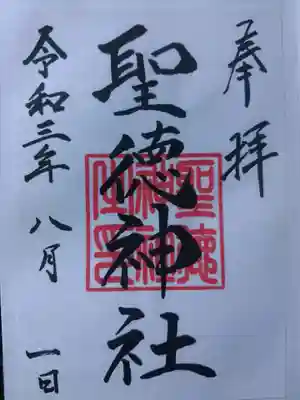 奉拝
聖徳神社
令和三年八月一日